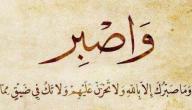 وَاصْبِر
وَمَا صَبْرُكَ إِلاَّ بِاللهِ وَلاَ تَحْزَنْ عَلَيْهِمْ وَلاَ تَكُ فِي ضَيْقٍ مِمَّا